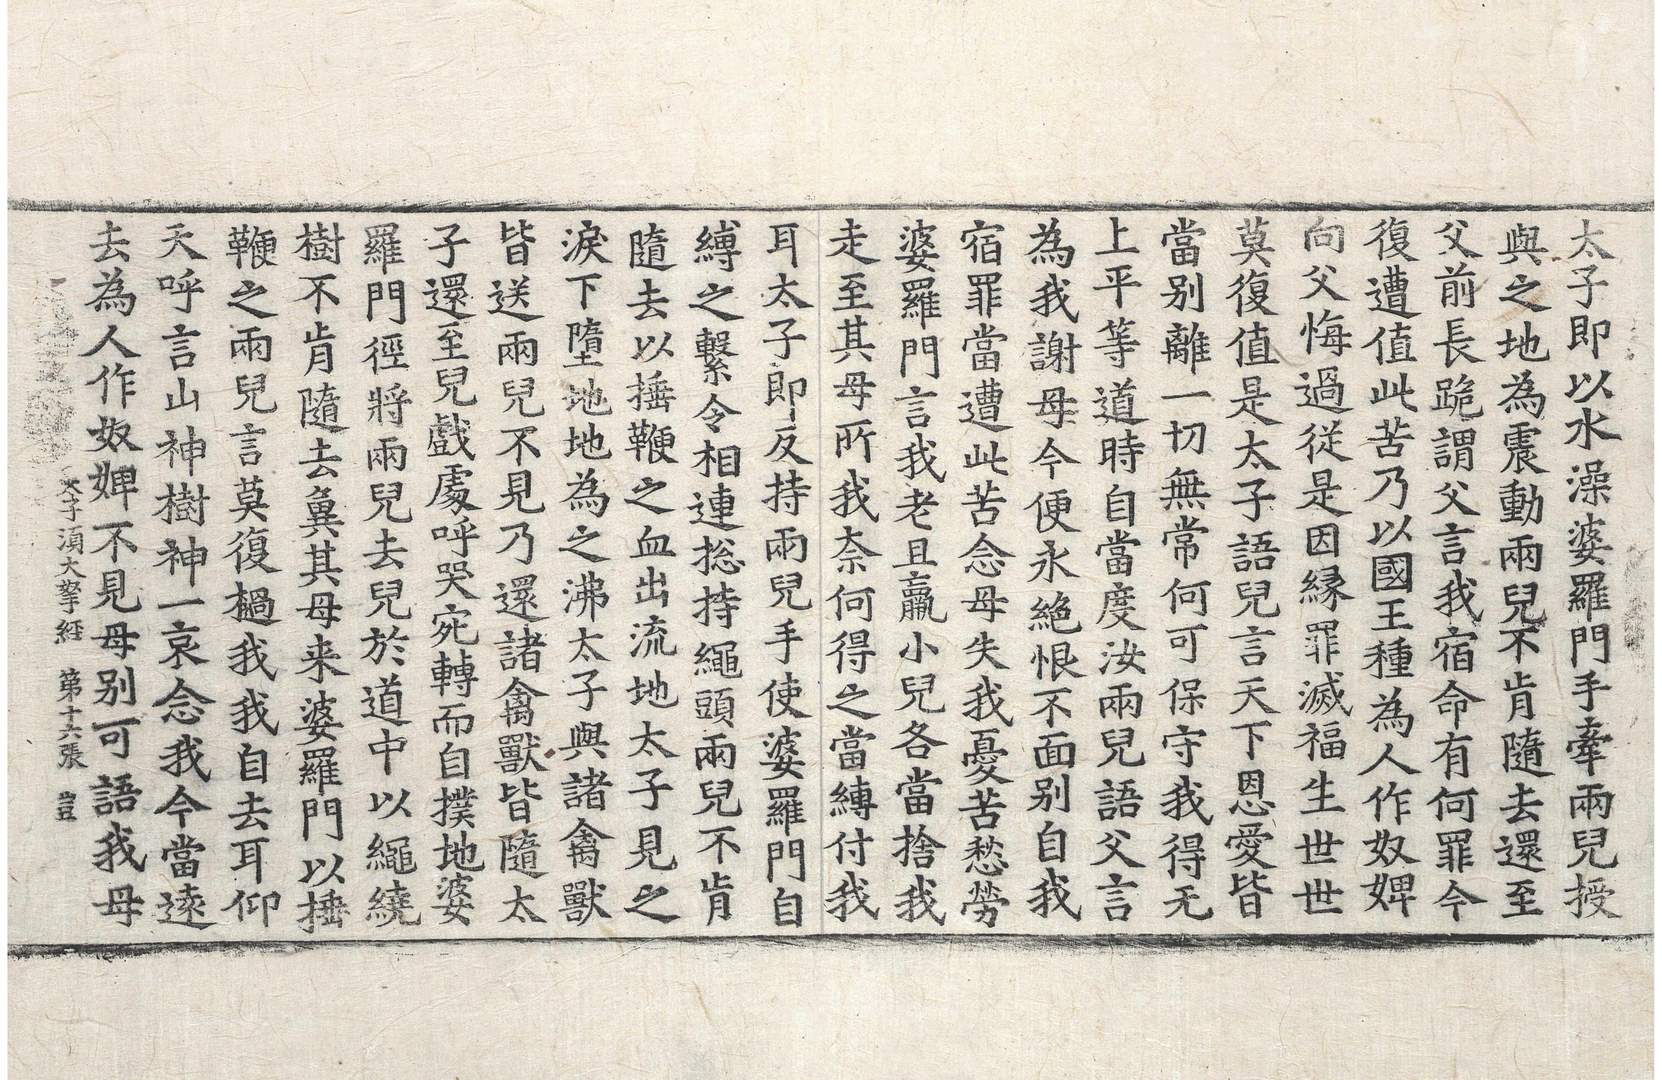 太子即以水澡婆羅門手牽兩兒授
與之地為震動兩兒不肯隨去還至
父前長跪謂父言我宿命有何罪今
復遭值此苦乃以國王種為人作奴婢
向父悔過從是因縁罪滅福生世世
莫復值是太子語兒言天下恩愛皆
當別離一切無常何可保守我得无
上平等道時自當度汝兩兒語父言
為我謝母今便永絶恨不面別自我
宿罪當遭此苦念母失我憂苦愁勞
婆羅門言我老且羸小兒各當捨我
走至其母所我柰何得之當縛付我
耳太子即反持兩兒手使婆羅門自
縛之繫令相連捴持繩頭兩兒不肯
隨去以捶鞭之血出流地太子見之
淚下墮地地為之沸太子與諸禽獸
皆送兩兒不見乃還諸禽獸皆隨太
子還至兒戲處呼哭宛轉而自撲地婆
羅門徑將兩兒去兒於道中以繩繞
樹不肯隨去兾其母来婆羅門以捶
鞭之兩兒言莫復撾我我自去耳仰
天呼言山神樹神一哀念我今當遠
去為人作奴婢不見母別可語我母
太子湏大拏經 第十六張 豈